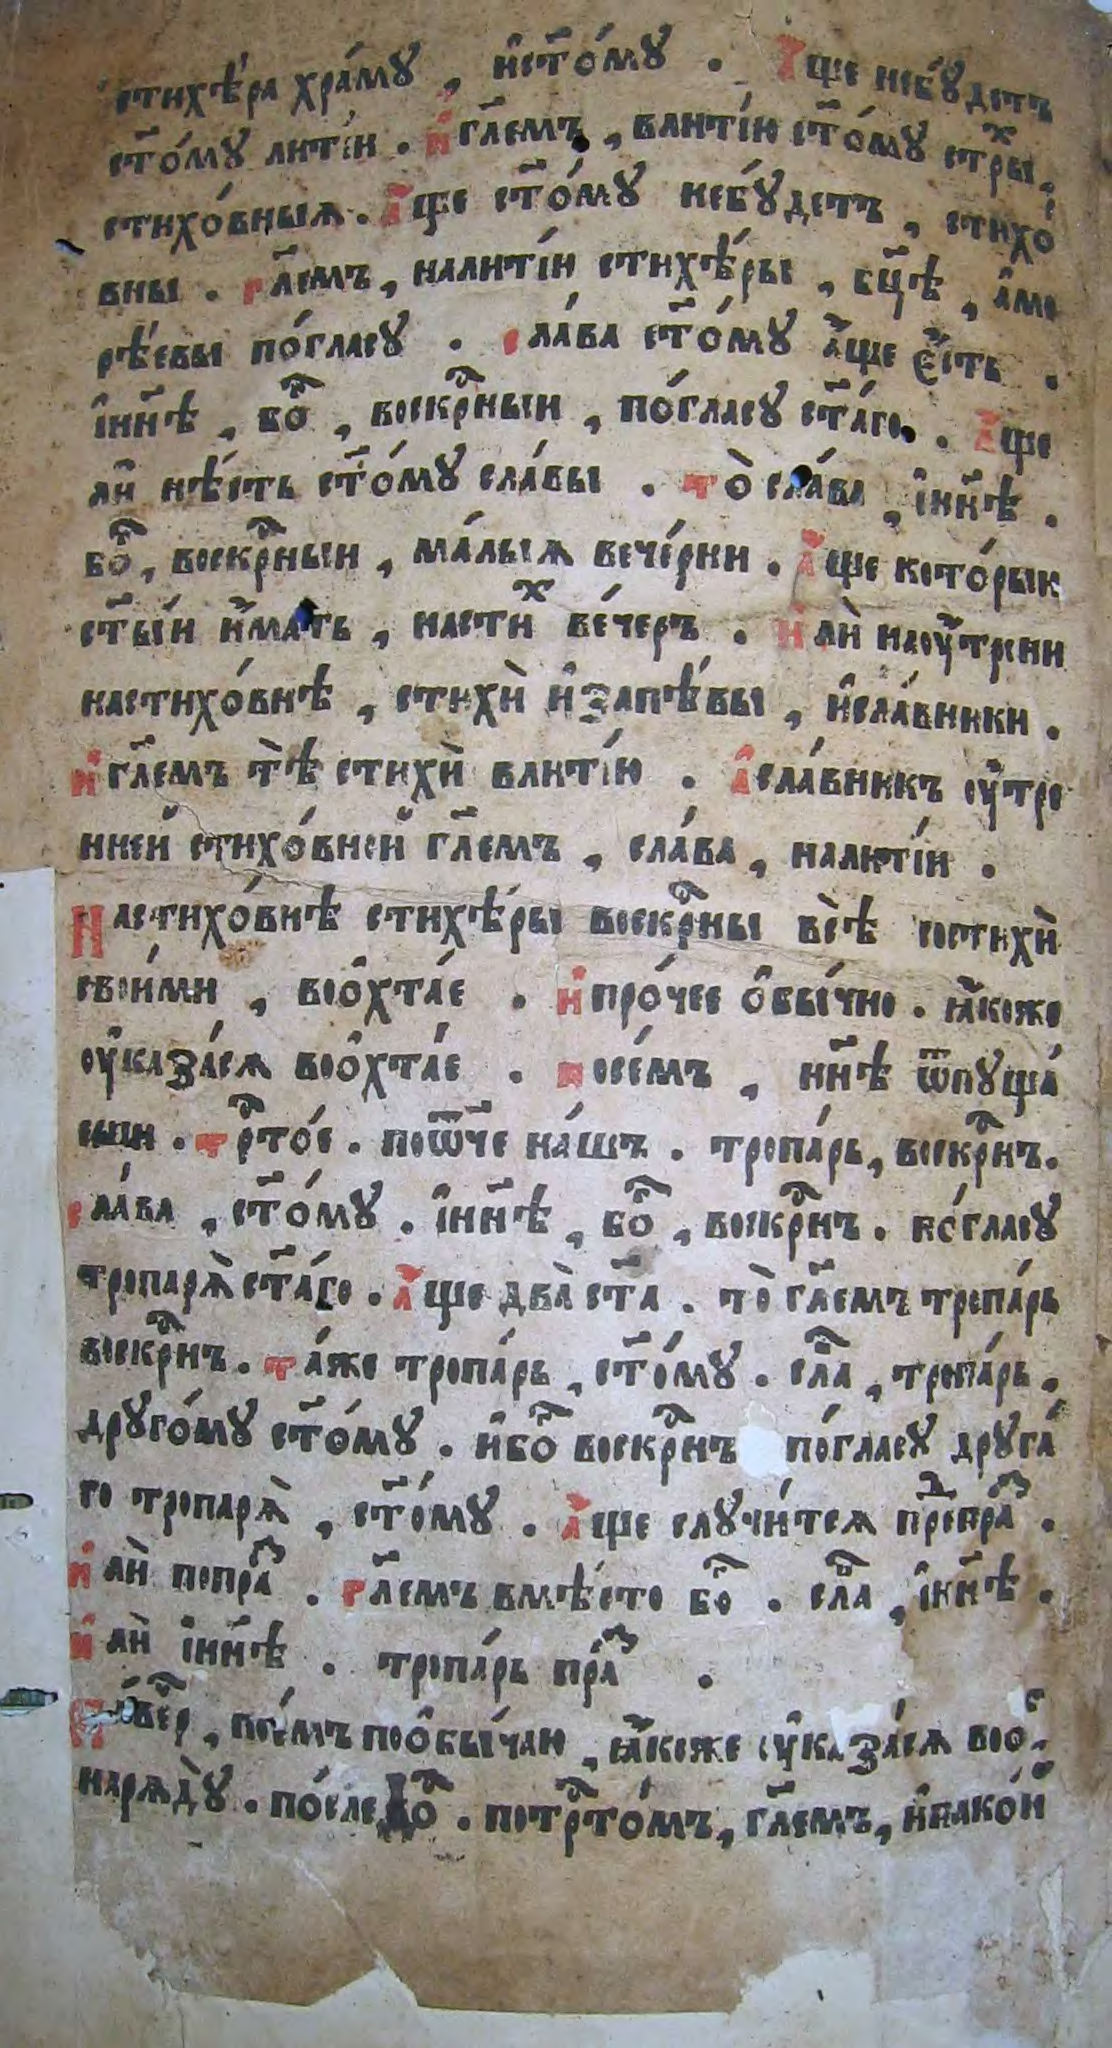 стихѣ́ра хра́мꙋ , и҆ст҃о́мꙋ . А҆́ще небꙋ́детъ
ст҃о́мꙋ литі́и . И҆ гл҃емъ , влиті́ю ст҃о́мꙋ стⷯры ,
стихо́вныѧ . А҆́ще ст҃о́мꙋ небꙋ́детъ , стихо́
вны . гл҃емъ , налиті́и стихѣ́ры , бц҃ѣ , а҆мо
рѣ́евы по́гласꙋ . сла́ва ст҃о́мꙋ а҆́ще є҆́сть .
і҆нн҃ѣ , бо҃ , воскр҃ныи , по́гласꙋ ст҃а́го . А҆́ще
ли҆ нѣ́сть ст҃о́мꙋ сла́вы . то̀ сла́ва , і҆нн҃ѣ .
бо҃ , воскр҃ныи , ма́лыѧ вече́рни . А҆́ще кото́рыи
ст҃ы́и и҆́мать , настиⷯ ве́черъ . И҆лѝ наоу҆́трени
настихо́внѣ , стихѝ и҆запѣ́вы , и҆сла́вники .
И҆ гл҃емъ тѣ̀ стихѝ влиті́ю . А҆сла́вникъ оу҆́тре
нней стихо́вней гл҃емъ , сла́ва , налиті́и .
Настихо́внѣ стихѣ́ры воскр҃ны всѣ̀ состихѝ
свои́ми , воо҆хта́е . И҆про́чее ѻ҆бы́чно . ꙗ҆́коже
оу҆каза́сѧ воо҆хта́е . посе́мъ , нн҃ѣ ѿпꙋща́
еши . тр҃то́е . поѿ҃че на́шъ . тропа́рь , воскр҃нъ .
сла́ва , ст҃о́мꙋ . і҆нн҃ѣ , бо҃ , воскр҃нъ . по́гласꙋ
тропарѧ̀ ст҃а́го . А҆́ще два̀ ст҃а . то̀ гл҃емъ тропа́рь
воскр҃нъ . та́же тропа́рь , ст҃о́мꙋ . сл҃а , тропа́рь ,
дрꙋго́мꙋ ст҃о́мꙋ . и҆бо҃ воскр҃нъ по́гласꙋ дрꙋга́
го тропарѧ̀ , ст҃о́мꙋ . А҆́ще слꙋчи́тсѧ преⷣпраⷥ .
И҆лѝ попраⷥ . гл҃емъ вмѣ́сто бо҃ . сл҃а , і҆нн҃ѣ .
И҆лѝ і҆нн҃ѣ . тропа́рь праⷥ .
пое́мъ поо҆бы́чаю , ꙗ҆́коже оу҆каза́сѧ воо҆́
нарѧ́дꙋ . по́следо҃ . потр҃то́мъ , гл҃емъ , и҆пако́и